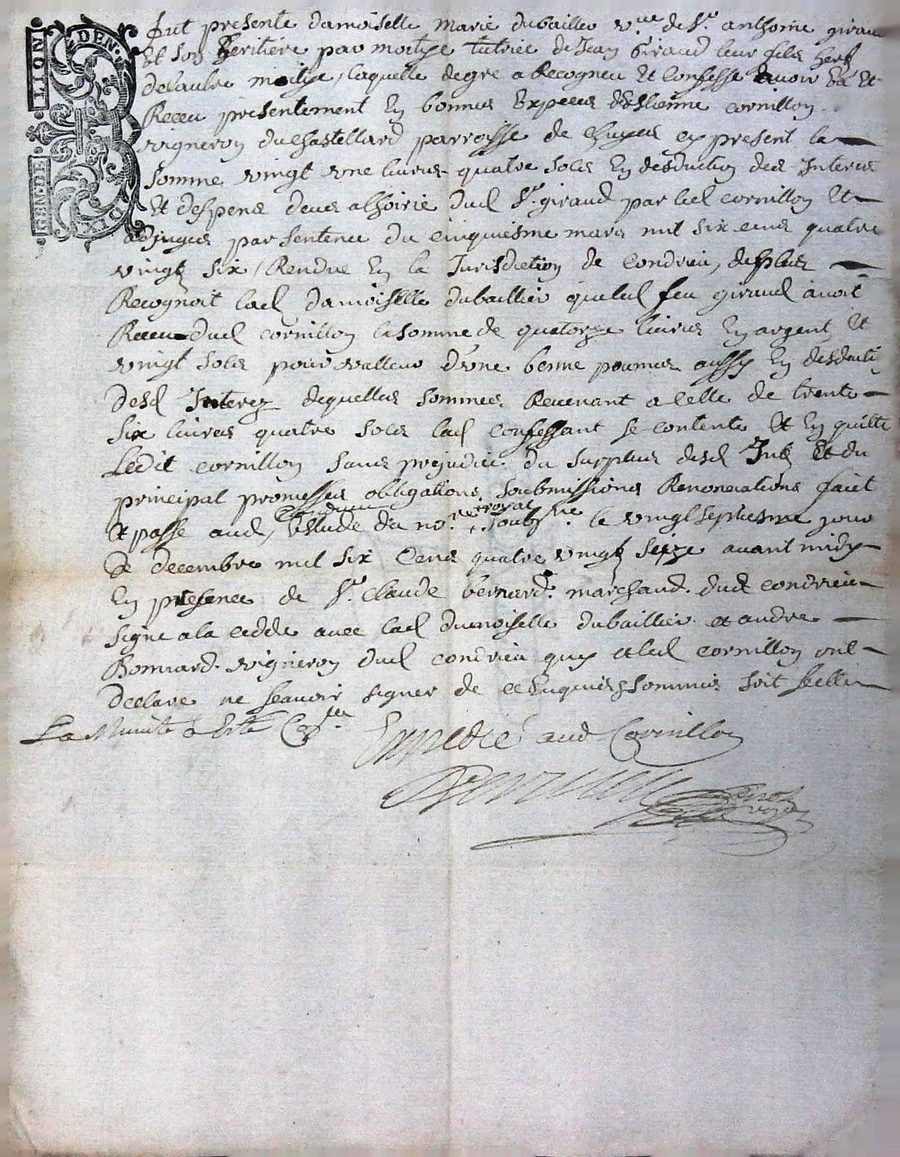 GENDE LION
DIX DEN.
fut presente damoiselle Marie dubailler vve de Sr anthoine giraud
et son heritiere par moitye tutrice de Jean Giraud leur fils herr
de l'aultre moitye, laquelle de gre a Recogneu Et Confesse avoir Eu Et
Receu presentement En bonnes Especes d'Estienne Cornillon
vigneron du Chastellard parroisse de present la
Somme vingt une livres quatre sols En desduction des Interes
Et despens deus a l'hoirie dud Sr giraud par led cornillon Et
adjuges par sentence du cinquiesme mars mil six cens quatre
vingt six, Rendue En la Jurisdiction de Condrieu, desplus
Recognoit lad damoiselle dubaillier que led feu giraud avoit
Receu dud cornillon la somme de quatorze livres En argent Et
vingt sols pour valleur d'une benne pommes aussy En desducti
desd Interez desquelles sommes Revenant a celle de trente
Six livres quatre sols lad confessant se contente Et En quitte
Ledit cornillon sans prejudice du surplus desd Intz Et du
principal promesses obligations soubmissions Renonciations fait
Et passe aud Condrieu Estude du nore royal soubzne le vingt septiesme jour
de decembre mil six Cens quatre vingt seize avant midy
En presence de Sr Claude bernard marchand dud Condrieu
signe a la cedde avec lad damoiselle dubaillier et andre
Bonnard vigneron dud Condrieu quy et led cornillon ont
declare ne scavoir signer de ce Enquis & sommes soit scelle
La Minute a Este Con.lee
Expedié aud Cornillon